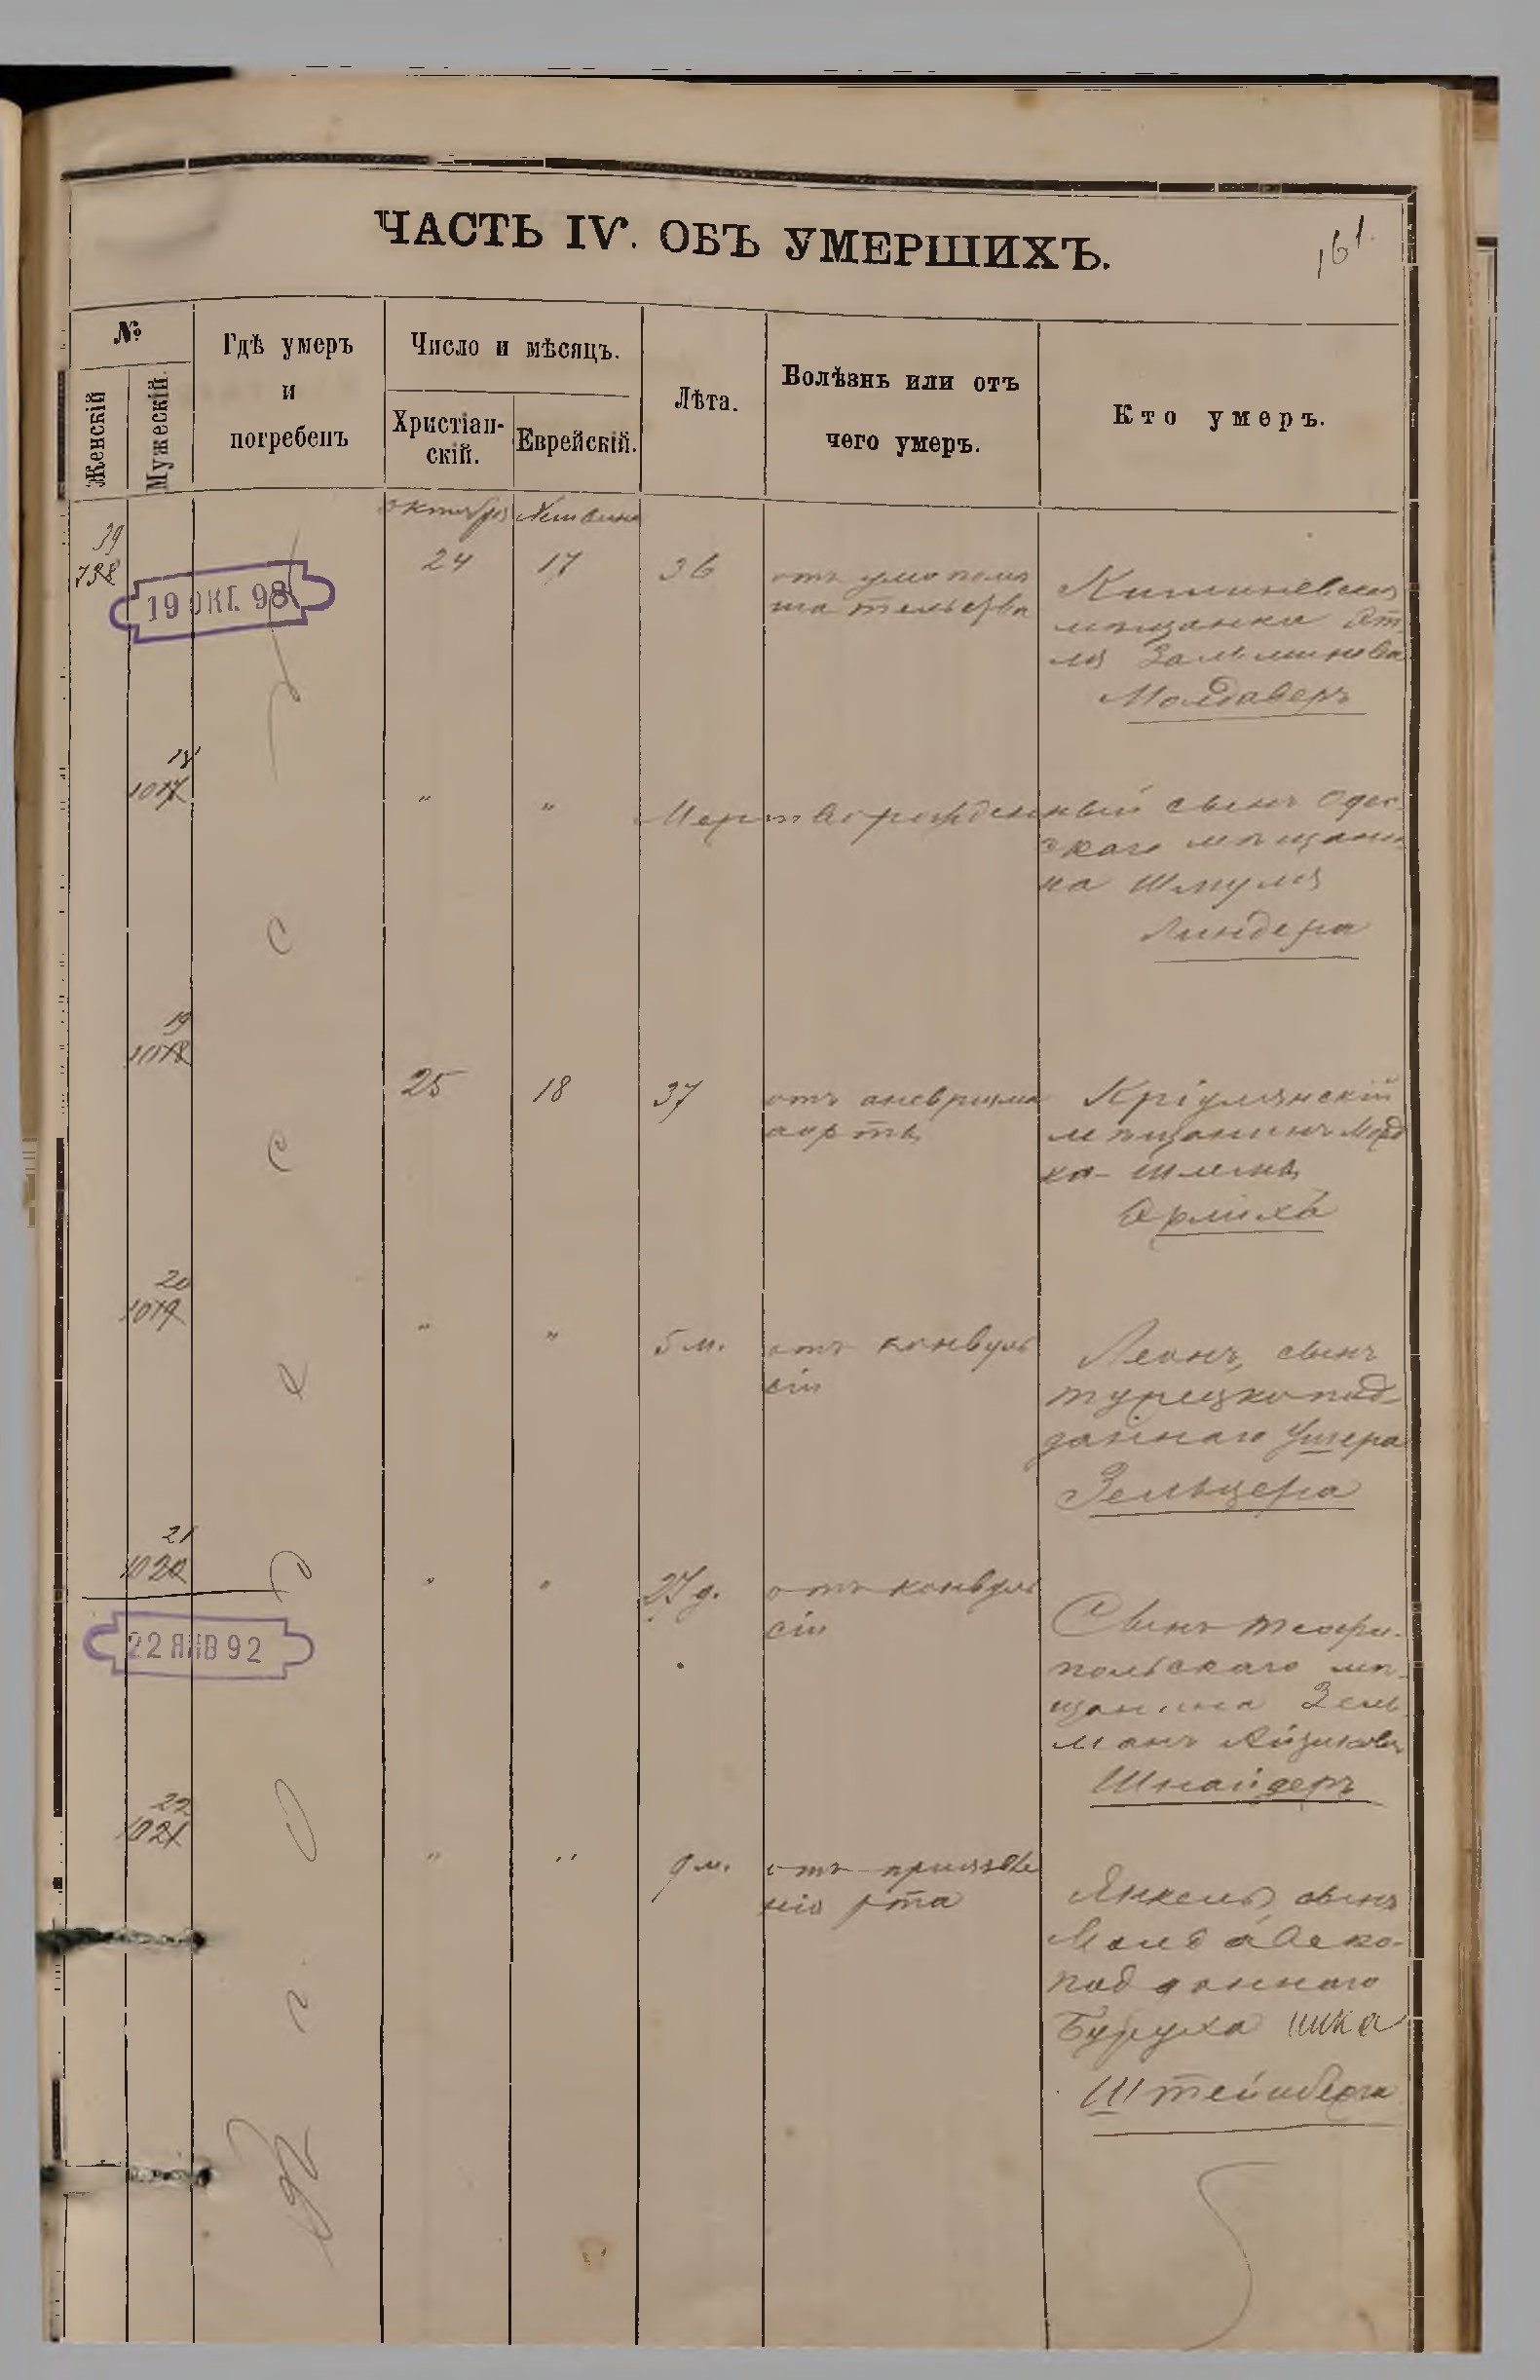 ЧАСТЬ IV. ОБЪ УМЕРШИХЪ.
161.
№
Женскій
Мужескій.
Гдѣ умеръ
и
погребенъ
Число и мѣсяцъ.
Христіан-
скій.
Еврейскій.
Лѣта.
Болѣзнь или отъ
чего умеръ.
Кто умеръ.
октября
39
738
19 ОКТ. 98
24
17
36
отъ умопомѣ
шательства
Кишиневская
мѣщанка Эт-
ля
Молдаверъ
18
1017
"
"
Мертворожденный сынъ Одес-
скаго мѣщани
на Шмуля
Линдера
19
1018
25
18
37
отъ аневризма
аорты
Кріулянскій
мѣщанинъ Морд
ко-
20
1019
"
"
5 м.
отъ конвуль
сіи
Леонъ, сынъ
турецкопод-
даннаго Ушера
Зельцера
21
1020
22 ЯНВ 92
"
"
27 д.
отъ конвуль
сіи
Сынъ теофи-
польскаго мѣ-
щанина Зель
манъ Айзиковъ
Шнайдеръ
22
1021
"
"
9 м.
отъ
рта
Янкель, сынъ
Молдавско-
подданнаго
Буруха
Штейнберга